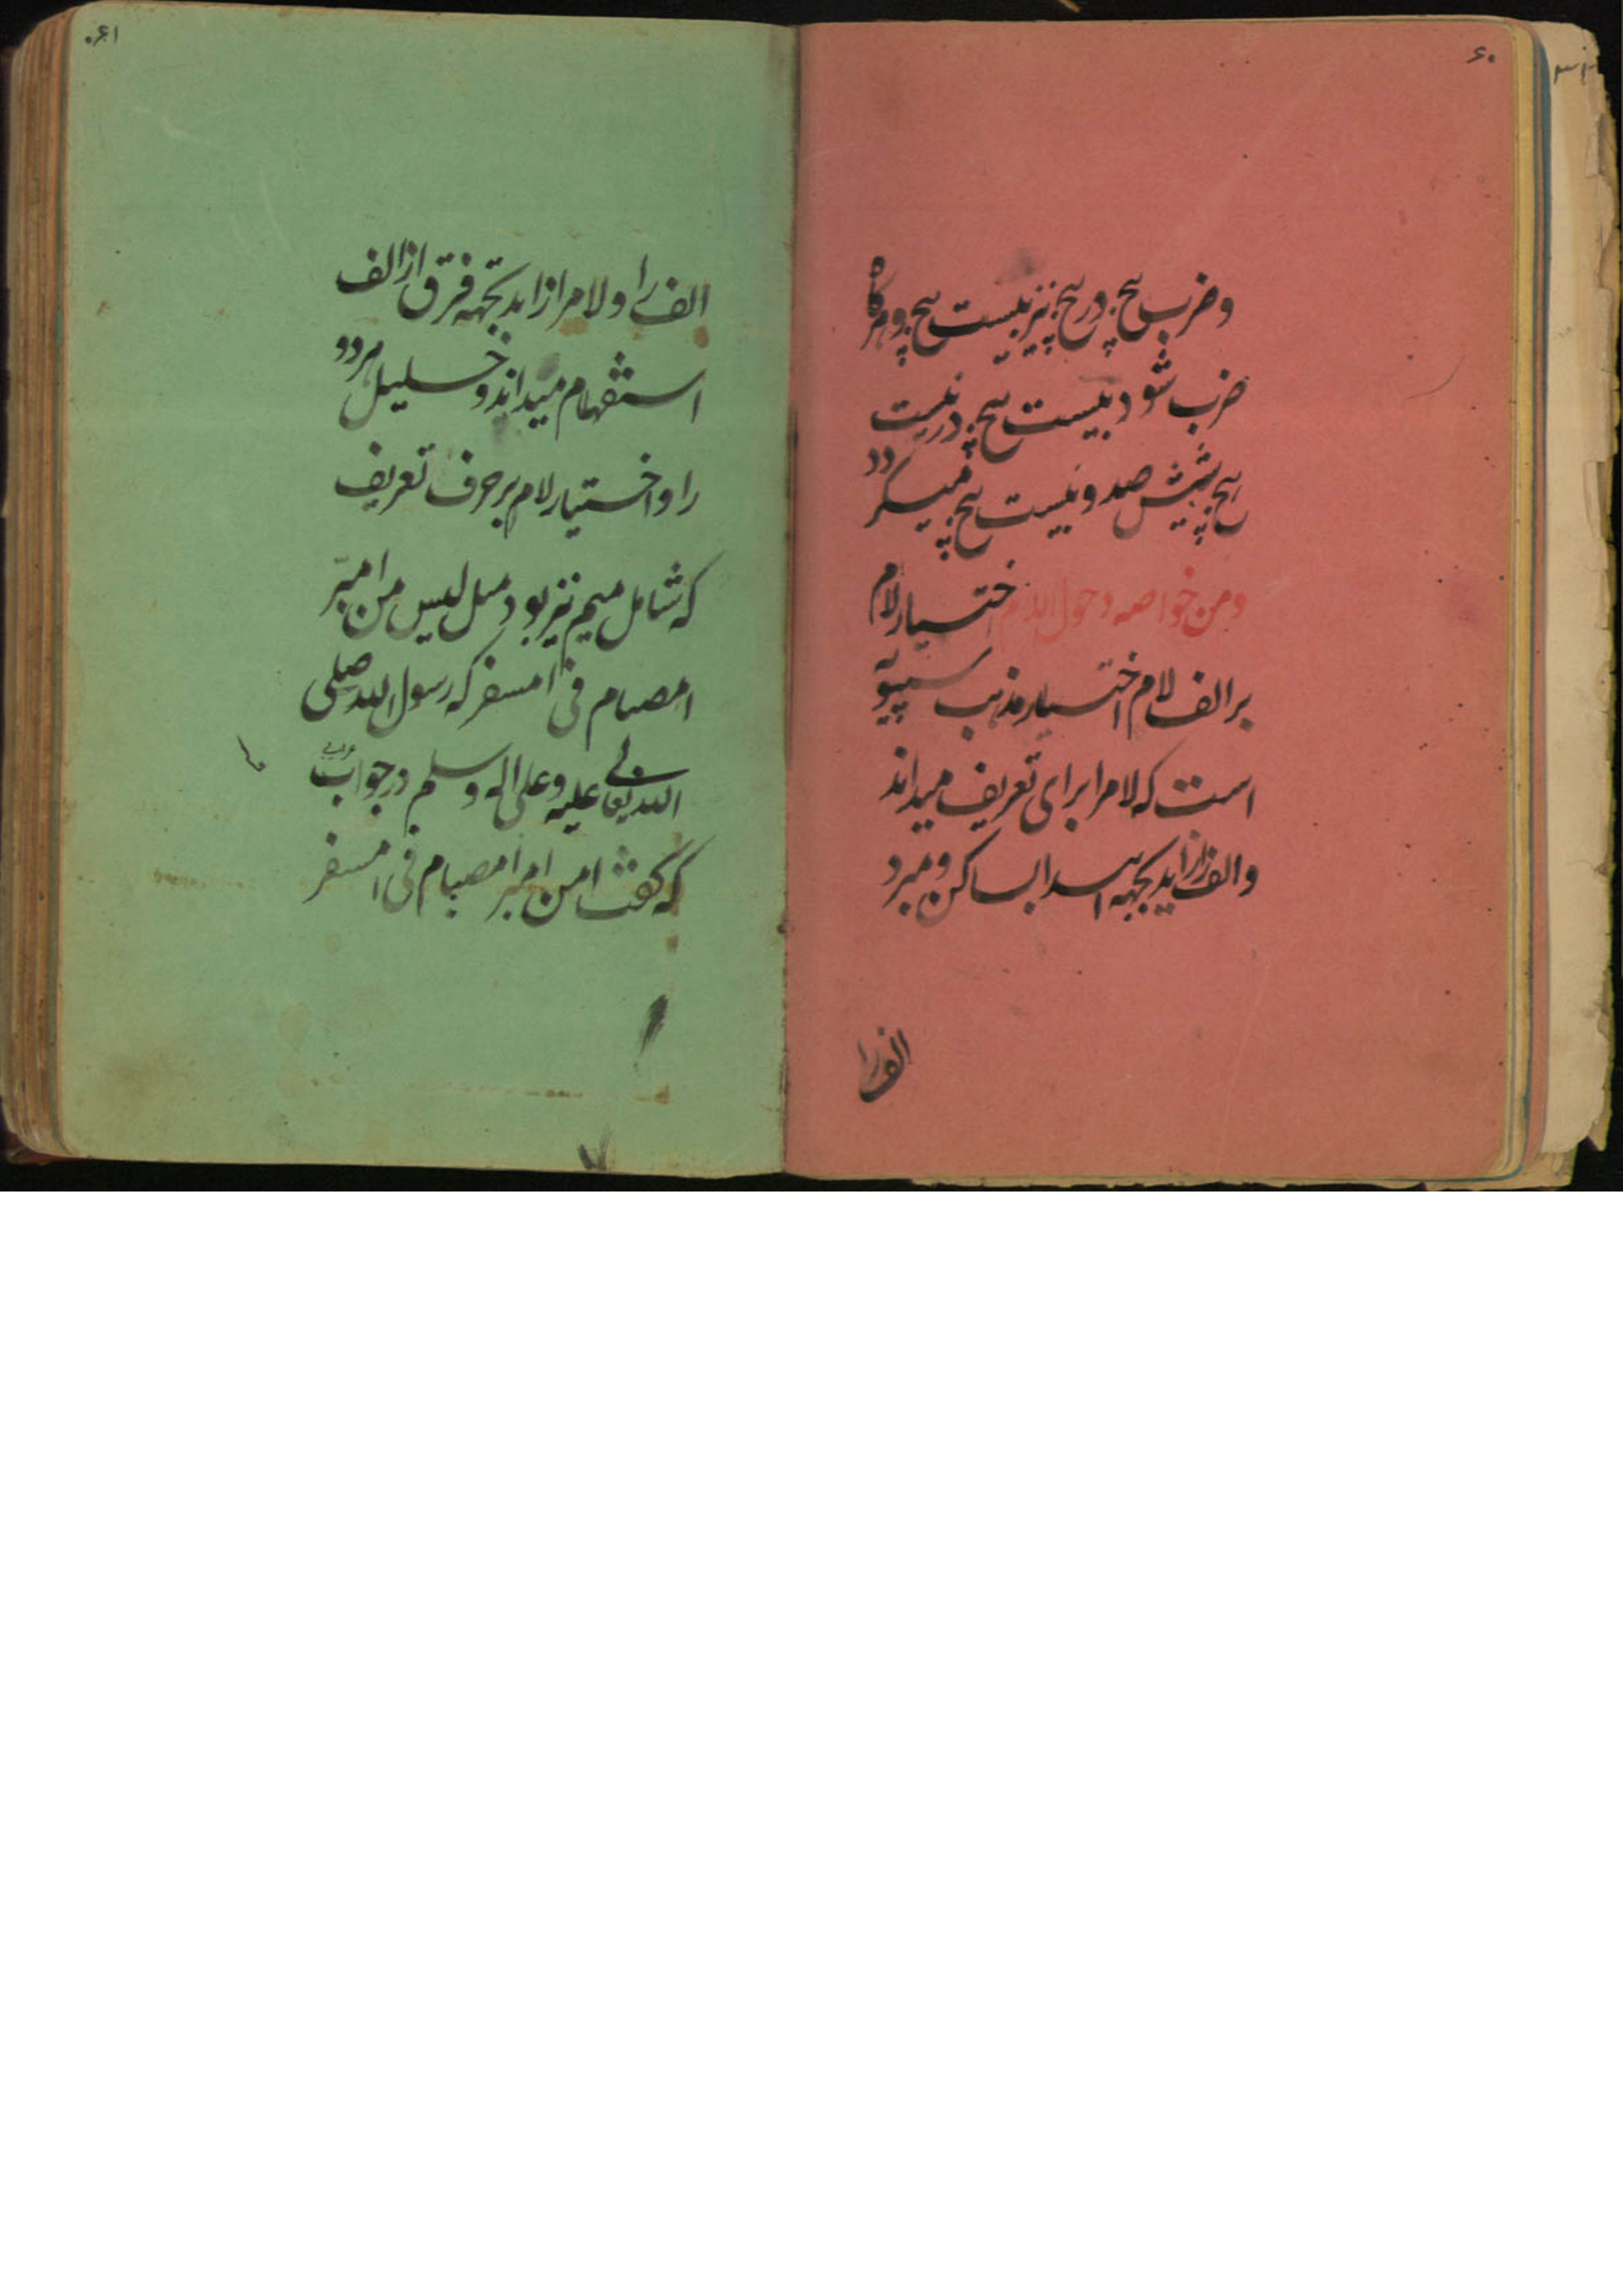 ۶۰
و ضرب پنج در پنج نیز بیست پنج و هرگاه
ضرب شود بیست پنج در بیست
پنج شش صد و بیست پنج میگردد
ومن خواصه دخول اللام اختیار لام
بر الف لام اختیار مذهب سیبویه
است که لامرا برای تعریف میداند
و الفرا زاید بجهه ابتدا بساکن و مبرد
الفرا
۶۱
الفرا و لامرا زاید بجهه فرق از الف
استفهام میداند و خلیل هر دو
را و اختیار لام بر حرف تعریف
که شامل میم نیز بود مثل لیس من امبر
امصیام فی امسفر که رسول الله صلی
الله تعالی علیه و علی اله و سلم در جواب
که گفت امن امبر امصیام فی امسفر